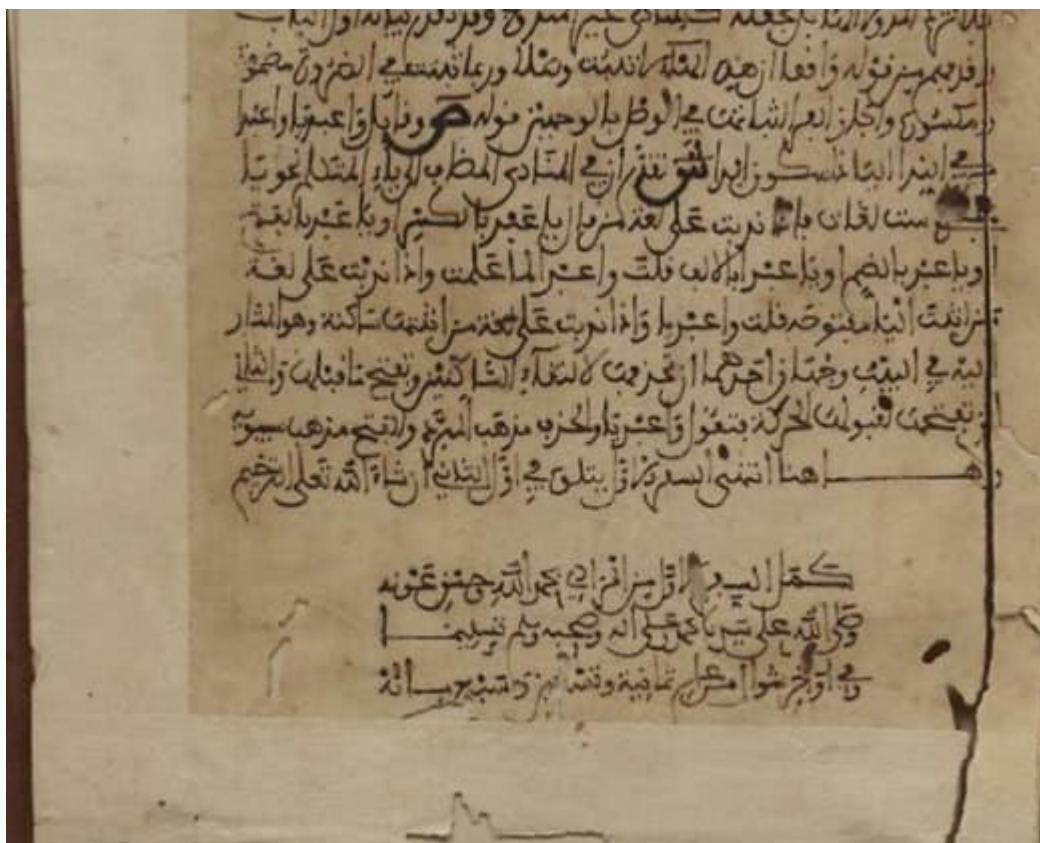 وقد فهم من قوله وافعا ان هذه المثلة اذا ثبتت وصلا وربما تثبت في الضرورة مضمومة
ومكسورة واجاز الفراء اثباتها في الوصل بالوجهين قوله ص وقائل واعبديا واعبدا
من في الندا اليا ذا سكون ابدا ش تقدم ان في المنادى المضاف الى ياء المتكلم نحو يا
ست لغات فاذا ندبت على لغة من قال يا عبد بالكسر او يا عبد بالفتح
او يا عبد بالضم او يا عبدا بالالف قلت واعبدا لما علمت واذا ندبت على لغة
من اثبت الياء مفتوحة قلت واعبديا واذا ندبت على لغة من اثبتها ساكنة وهو المشار
اليه في البيت وجهان احدهما ان تحذف لالتقاء الساكنين وتفتح ما قبلها والثاني
ان تفتحها لقبولها الحركة فتقول واعبديا والحذف مذهب المبرد والفتح مذهب سيبويه
وهـــــا هنا انتهى السفر الاول يتلوه في اول الثاني ان شاء الله تعلى الترخيم
كمل السفر الاول من المرادي بحمد الله وحسن عونه
وصلى الله على سيدنا محمد وعلى اله وصحبه وسلم تسليمـــا
وفي اواخر شوال من عام ثمانية وتسعين وسبع مـــائة